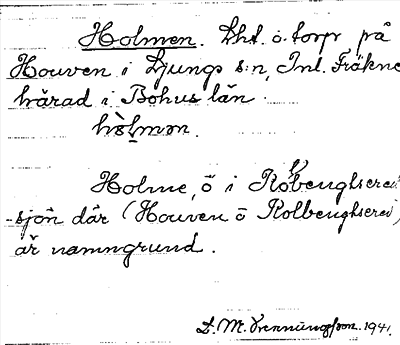 Holmen. Lht. o. torp på
Houven i Ljungs s:n, Inl. Fräkne
härad i Bohus län.
hòlmən.
Holme, ö i Kolbengtsered
-sjön där (Houven o Kolbengtsered)
är namngrund.
L. M. Svenungsson. 1941.